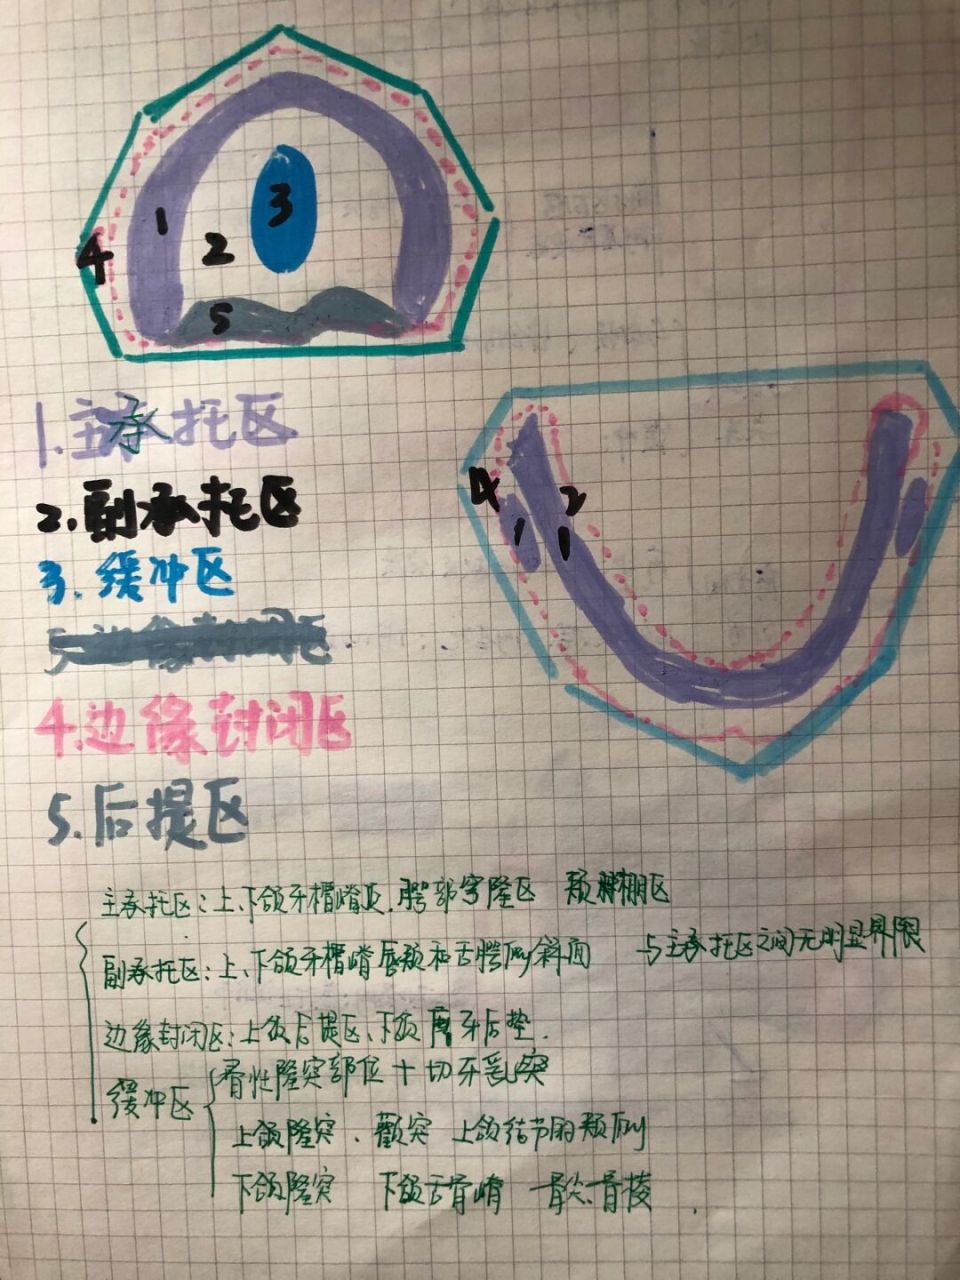 1
2
3
4
5
1.主承托区
2.副承托区
3.缓冲区
4.边缘封闭区
5.后提区
4
1
1
2
主承托区：上、下颌牙槽嵴顶.腭部穹隆区 颊棚区
副承托区：上、下颌牙槽嵴唇颊和舌腭侧斜面 与主承托区之间无明显界限
边缘封闭区：上颌后提区、下颌磨牙后垫.
缓冲区 骨性隆突部位+切牙乳突
上颌隆突、颧突 上颌结节的颊侧
下颌隆突 下颌舌骨嵴 骨尖、骨棱